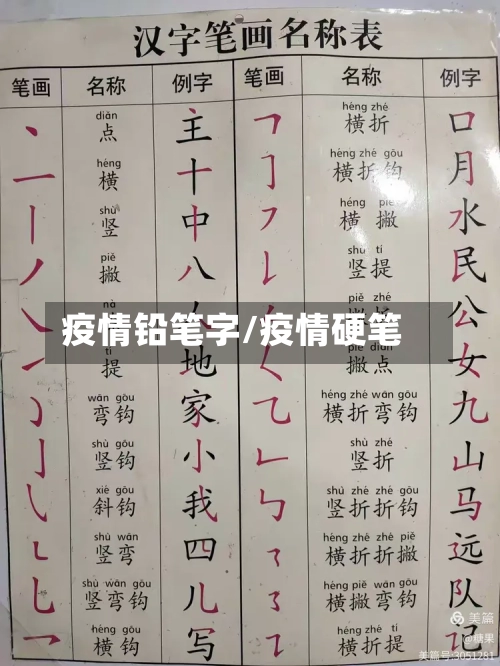 汉字笔画名称表
笔画 名称 例字 笔画 名称 例字
diǎn 点 主 héng zhé 横折 口
héng 横 十 héng zhé gōu 横折钩 月
shù 竖 中 héng piě 横撇 水
piě 撇 八 shù tí 竖提 民
nà 人 piě zhé 公
疫情铅笔字/疫情硬笔
提 地 piě diǎn 撇点 女
wān gōu 弯钩 家 héng zhé wān gōu 横折弯钩 九
shù gōu 竖钩 小 shù zhé 竖折 山
xié gōu 斜钩 我 shù zhé zhé gōu 竖折折钩 马
shù wān 竖弯 四 héng zhé zhé piě 横折折撇 远
shù wān gōu 竖弯钩 儿 héng piě wān gōu 横撇弯钩 队
héng gōu 横钩 写 héng zhé tí 横折提 记
美篇
@糖果
美篇号:3051281